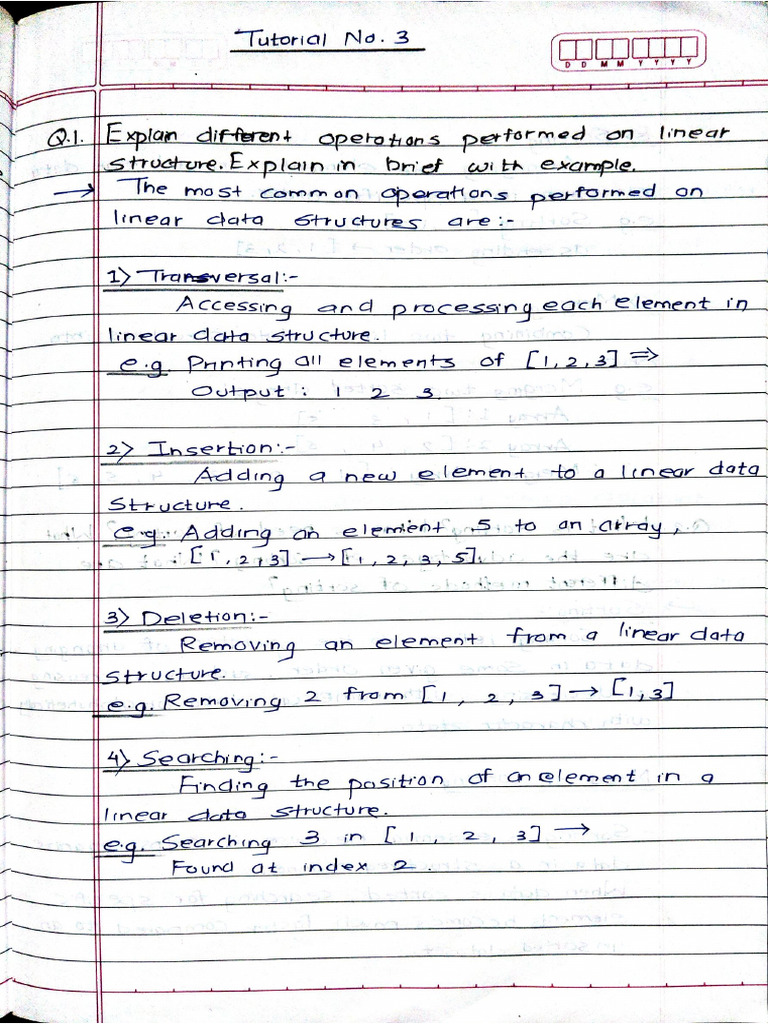 Tutorial No. 3
D D M M Y Y Y Y
Q.1. Explain different operations performed on linear
structure. Explain in brief with example.
→ The most common operations performed on
linear data structures are:-
1) Transversal:-
Accessing and processing each element in
linear data structure.
e.g. Printing all elements of [1,2,3] ⇒
Output: 1 2 3
2) Insertion:-
Adding a new element to a linear data
structure.
e.g. Adding an element 5 to an array,
[1,2,3] → [1, 2, 3, 5].
3) Deletion:-
Removing an element from a linear data
structure.
e.g. Removing 2 from [1, 2, 3] → [1,3]
4) Searching:-
Finding the position of an element in a
linear data structure.
e.g. Searching 3 in [1, 2, 3] →
Found at index 2.